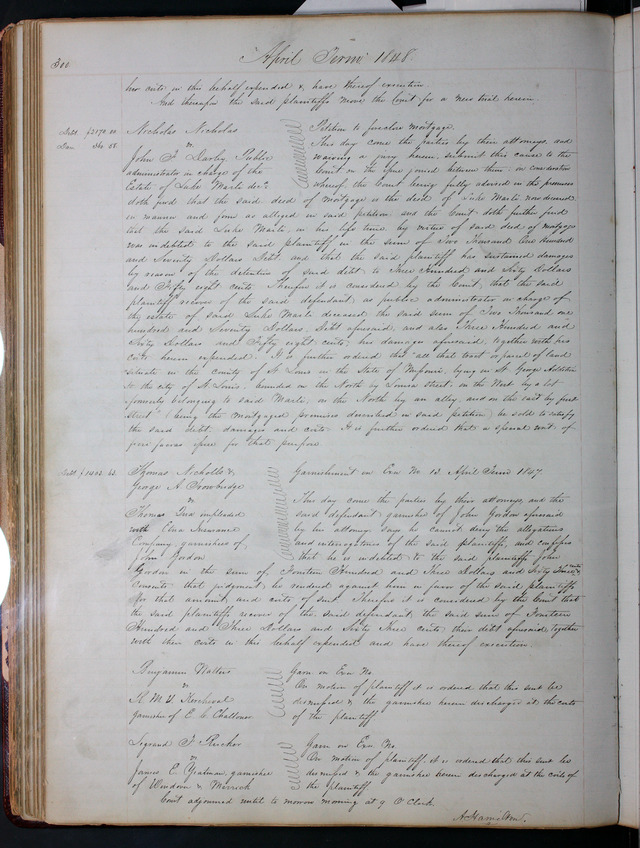 300
April Term 1848.
her costs in this behalf expended &, have thereof execution.
And thereafter the said plaintiffs move the Court for a new trial herein.
Debt $2170.00.
Dam 360.58.
Nicholas Nicholas
vs
John F Darby Public
administrator in charge of the
Estate of Luke Marte decd
Petition to foreclose mortgage.
This day come the parties by their attorneys, and
waiving a jury herein, submit this cause to the
Court on the issue joined between them: on consideration
whereof the Court being fully advised in the premises
doth find that the said deed of mortgage is the deed of Luke Marte, now deceased
in manner and form as alleged in said petition and the Court doth further find
that the said Luke Marte, in his life time by virtue of said deed of mortgage
was indebted to the said plaintiff in the sum of Two Thousand One Hundred
and Seventy Dollars Debt and that the said plaintiff has sustained damages
by reason of the detention of said debt, to Three Hundred and Sixty Dollars
and Fifty eight cents. Therefore it is considered by the Court, that the said
plaintiff recover of the said defendant as public administrator in charge of
the estate of said Luke Marte deceased the said sum of Two Thousand one
hundred and Seventy Dollars, Debt aforesaid, and also Three Hundred and
Sixty Dollars and Fifty eight cents, his damages aforesaid, together with his
costs herein expended. It is further ordered that "all that tract or parcel of land
situate in the County of St Louis in the State of Missouri, lying in St. George Addition
to the city of St. Louis, bounded on the North by Louisa street, on the West by a lot
formerly belonging to said Marte, on the North by an alley, and on the east by front
street" (being the mortgaged premises described in said petition) be sold to satisfy
the said debt, damages and costs. It is further ordered that a special writ of
fieri facias issue for that purpose
Debt $1403.63.
Thomas Nicholls &
George A Trowbridge
vs
Thomas impleaded
with Etna Insurance
Company, garnishees of
John Gordon
Garnishment on Exn No. 13. April Term 1847.
This day come the parties by their attorneys, and the
said defendant, garnishee of John Gordon aforesaid
by his attorney says he cannot deny the allegations
and interrogatories of the said plaintiffs, and confesses
that he is indebted to the said plaintiffs John
Gordon in the sum of Fourteen Hundred and Three Dollars and Sixty Three cents &
consents that judgment be rendered against him in favor of the said plaintiffs
for that amount, and costs of suit. Therefore it is considered by the Court that
the said plaintiffs recover of the said defendant, the said sum of Fourteen
Hundred and Three Dollars and Sixty Three cents their debt aforesaid, together
with their costs in this behalf expended and have thereof execution
Benjamin Walters
vs
H. M. Y. Kercheval
garnishee of E. C. Challoner
Garn on Exn No
On motion of plaintiff it is ordered that this suit be
dismissed & the garnishee herein discharged at the costs
of the plaintiff
Legrand F Rucker
vs
James E. Yeatman, garnishee
of Windom & Merrick
Garn on Exn No.
On motion of plaintiff, it is ordered that this suit be
dismissed & the garnishee herein discharged at the costs of
the plaintiff
Court adjourned until to morrow morning at 9 O Clock.
A Hamilton.